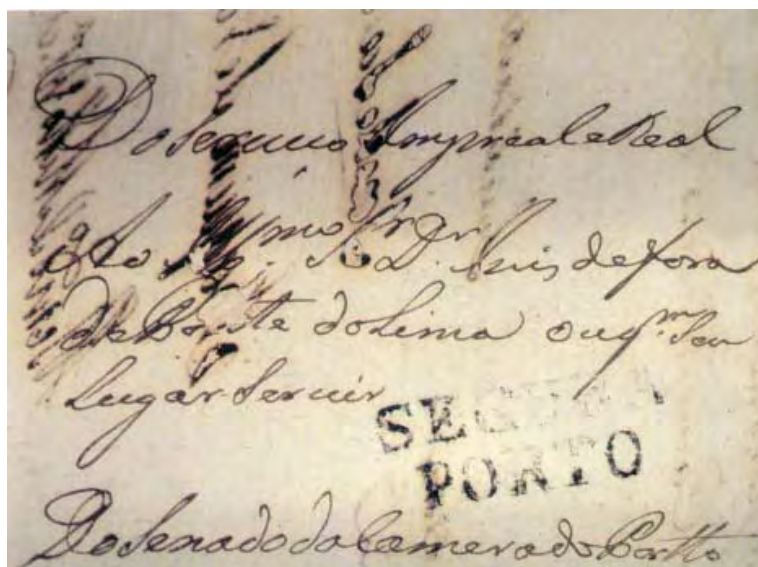 Do Serviço Imprial e Real
Ao Illmo Snr Dr Juis de fora
de Ponte do Lima ou qm Seu
Lugar Servir
SEGURA
PORTO
Do Senado da Camera do Portto